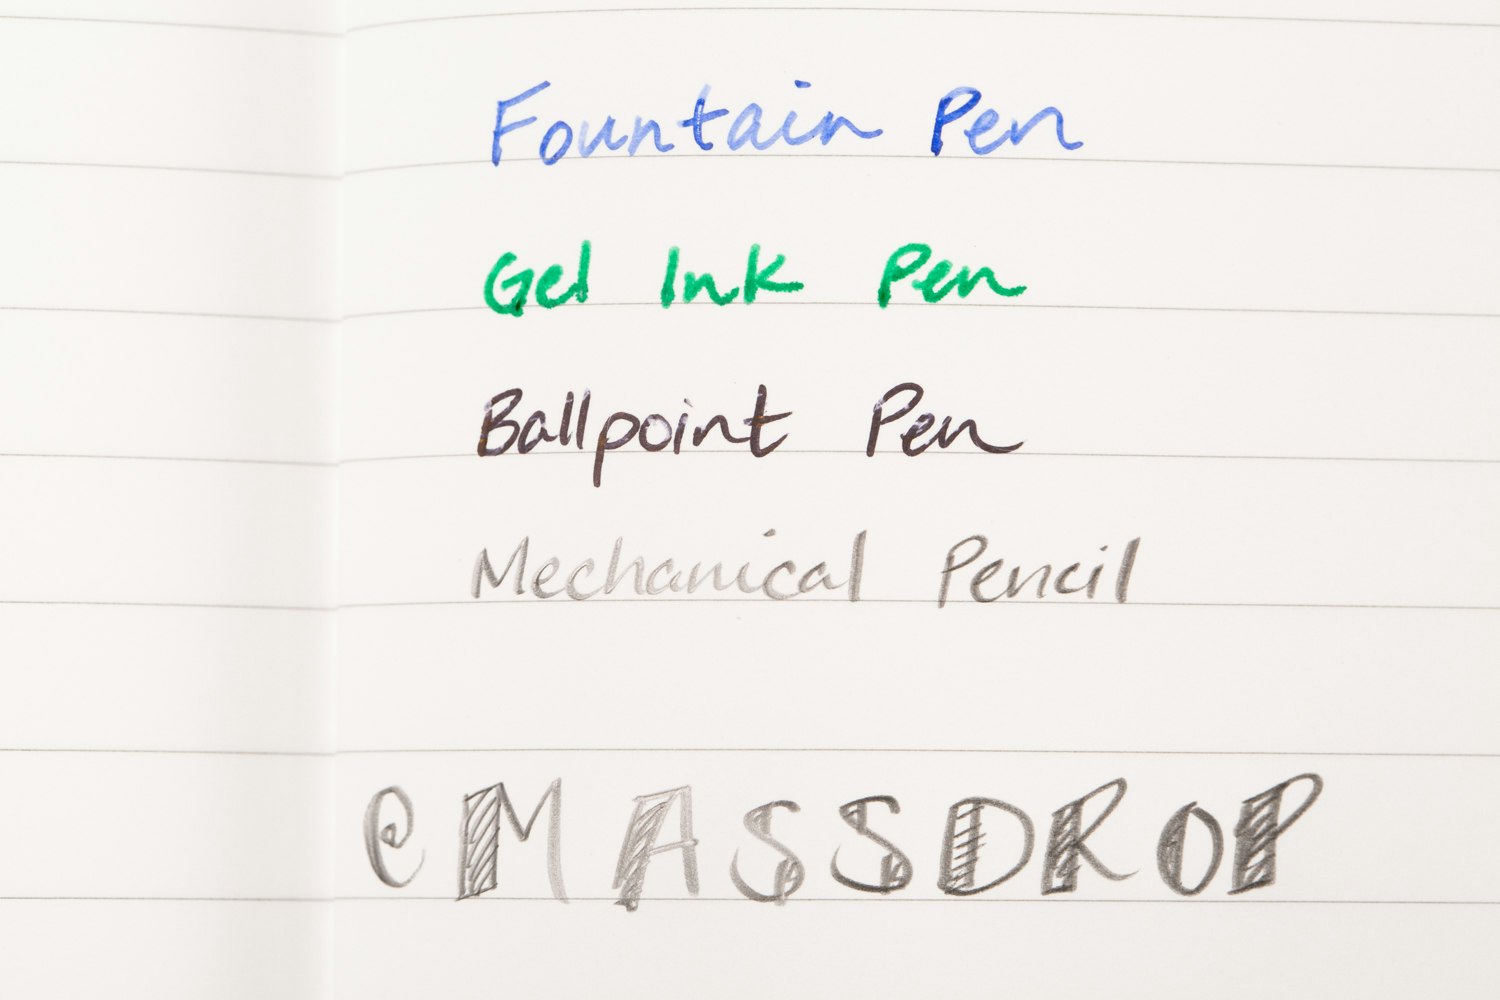 Fountain Pen
Gel Ink Pen
Ballpoint Pen
Mechanical Pencil
@MASSDROP